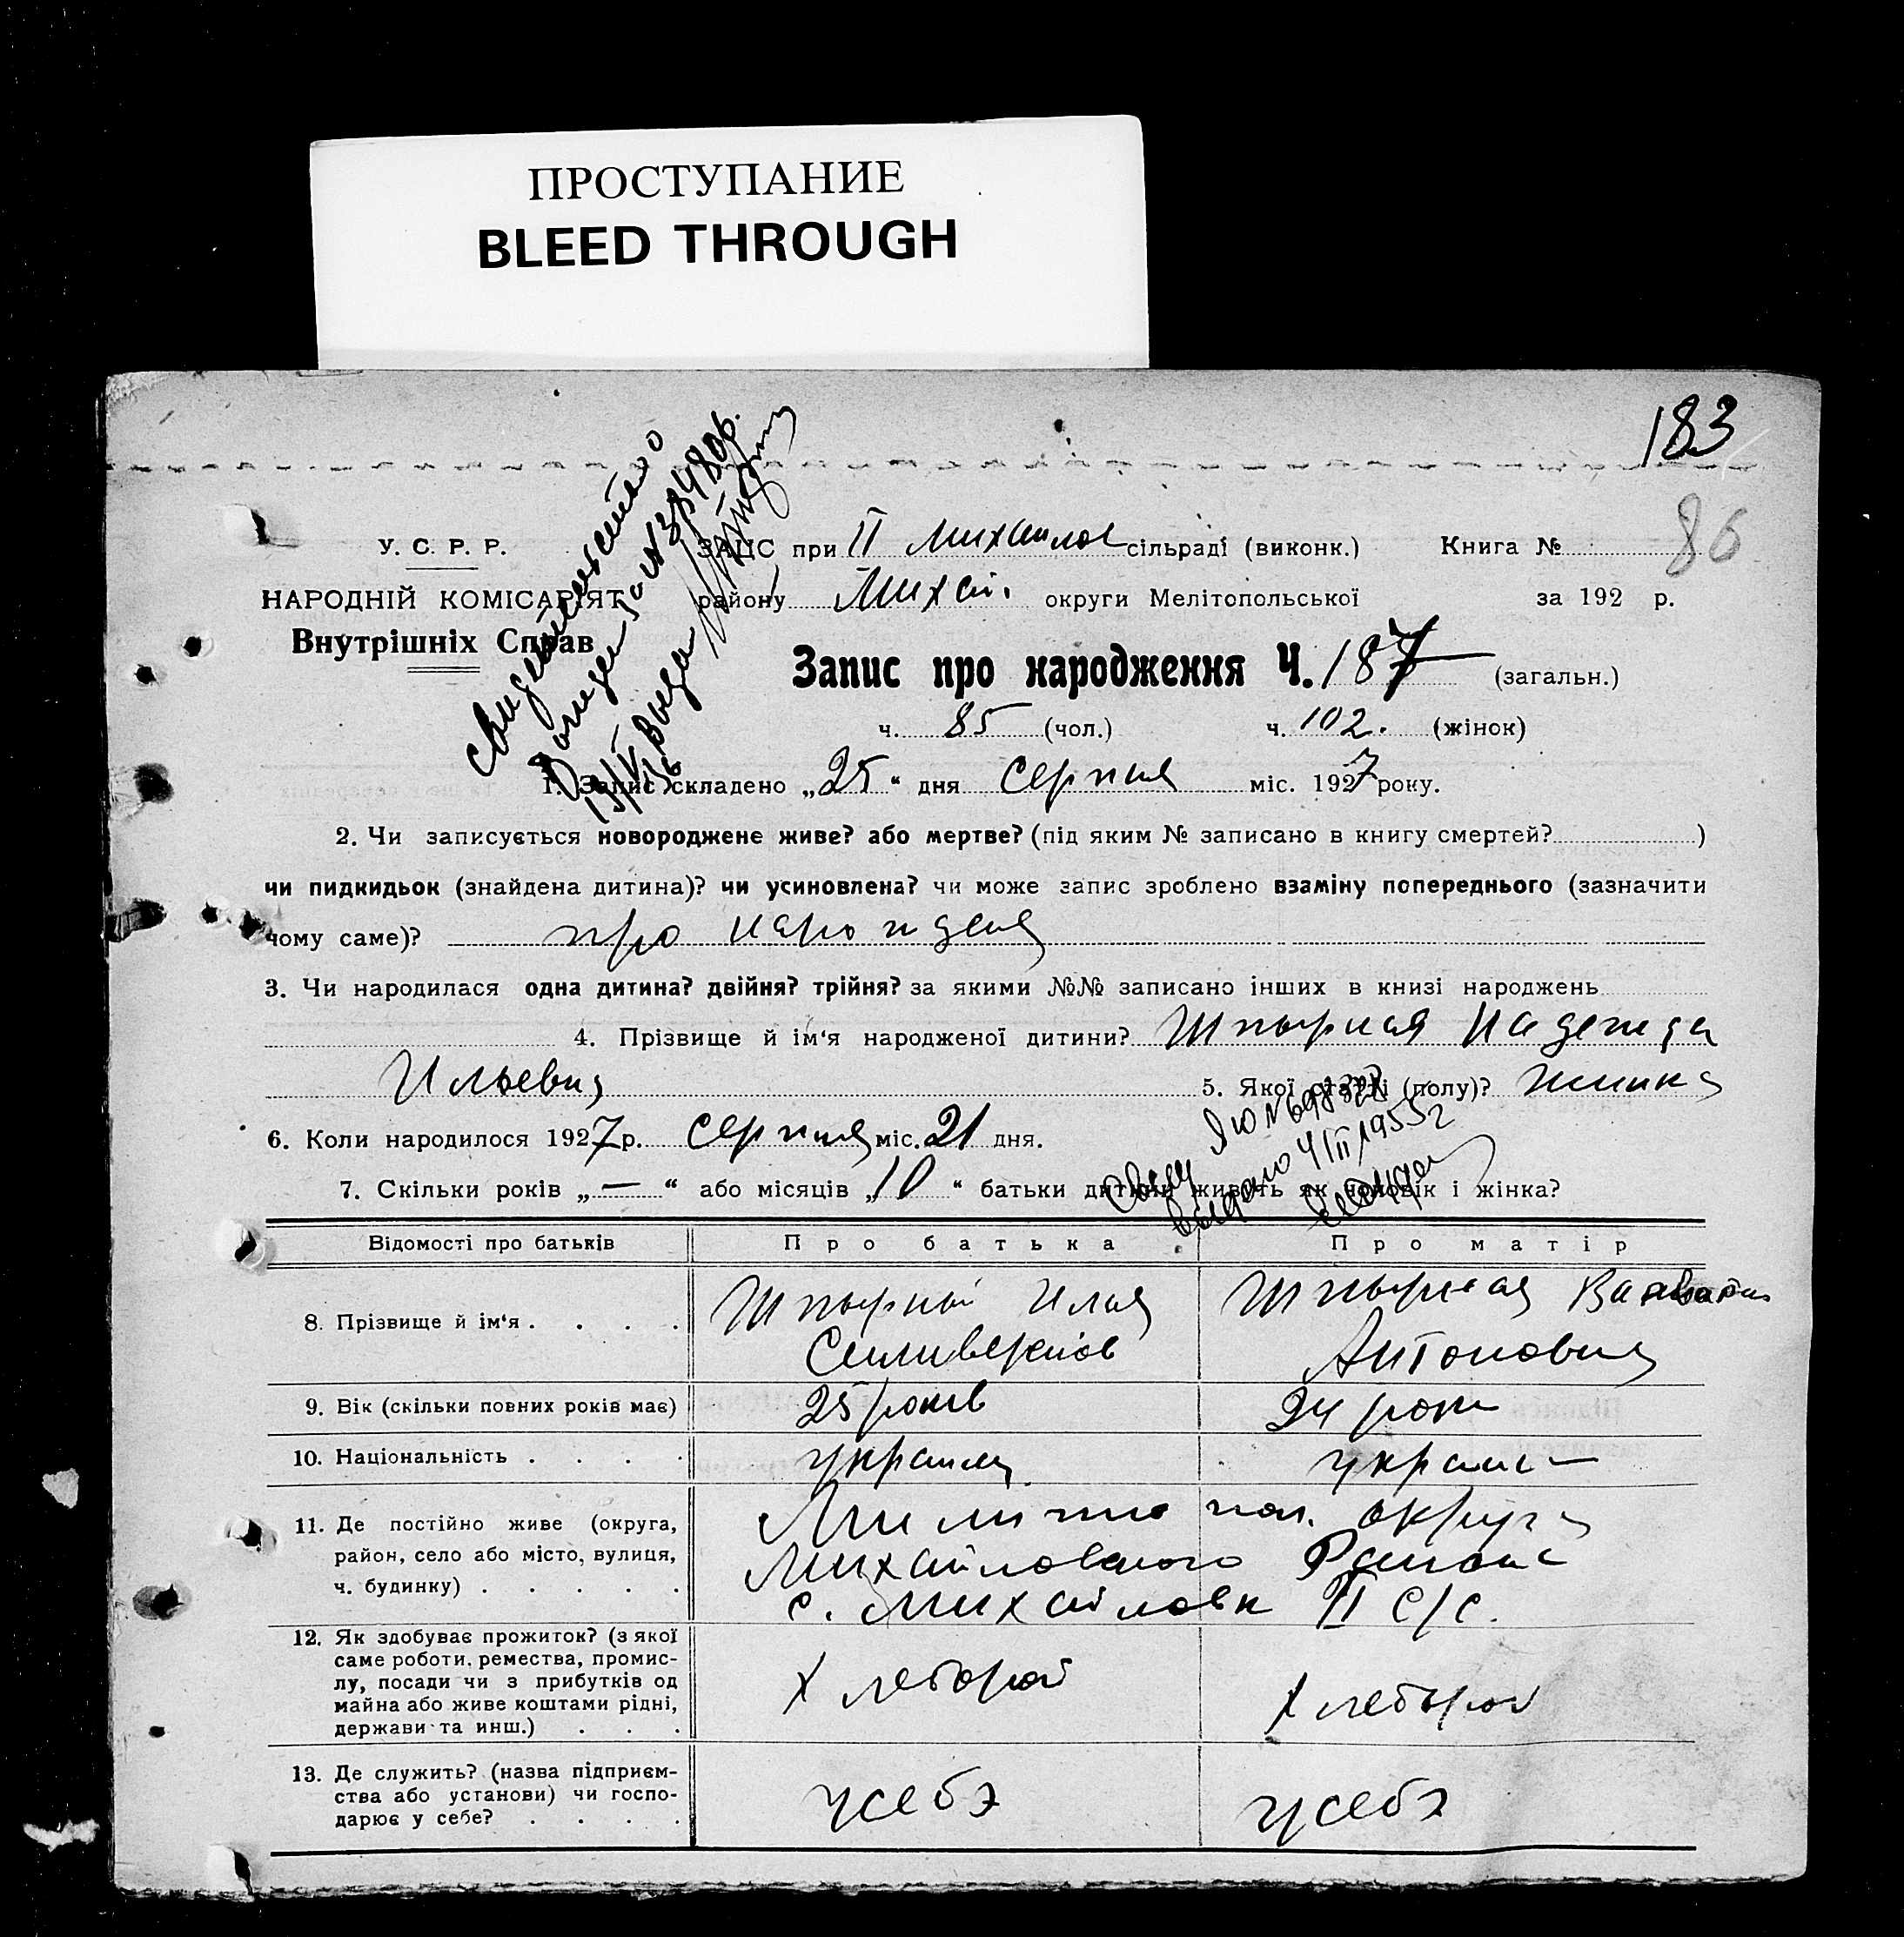 ПРОСТУПАНИЕ
BLEED THROUGH
183
86
У. С. Р. Р.
НАРОДНІЙ КОМІСАРІЯТ
Внутрішніх Справ
Свидетельство
ЗАЦС при II Михайлов сільраді (виконк.) Книга №
району Михай. округи Мелітопольської за 192 р.
Запис про народження Ч. 187 (загальн.)
ч. 85 (чол.) ч. 102. (жінок)
1. Запис складено „25“ дня серпня міс. 1927 року.
2. Чи записується новороджене живе? або мертве? (під яким № записано в книгу смертей? )
чи пидкидьок (знайдена дитина)? чи усиновлена? чи може запис зроблено взаміну попереднього (зазначити
чому саме)? про
3. Чи народилася одна дитина? двійня? трійня? за якими №№ записано інших в книзі народжень
4. Прізвище й ім‘я народженої дитини? Шпырная Надежда
Ильевна 5. Якої статті (полу)? жинка
6. Коли народилося 1927 р. серпня міс. 21 дня.
7. Скільки років „—“ або місяців „10“ батьки дитини живуть як чоловік і жінка?
выдано 4/II 1955 г
Відомості про батьків Про батька Про матір
8. Прізвище й ім‘я . . . . Шпырной Илья Шпырная
Антоновна
9. Вік (скільки повних років має) 25 років 24 роки
10. Національність . . . .
11. Де постійно живе (округа, округа
район, село або місто, вулиця, Михайловского
ч. будинку) . . . . . с. Михайловк II с/с.
12. Як здобуває прожиток? (з якої
саме роботи, ремества, промис-
лу, посади чи з прибутків од Хлебороб Хлебороб
майна або живе коштами рідні,
держави та инш.) . . .
13. Де служить? (назва підприєм-
ства або установи) чи госпо- у себэ у себэ
дарює у себе? . . . .